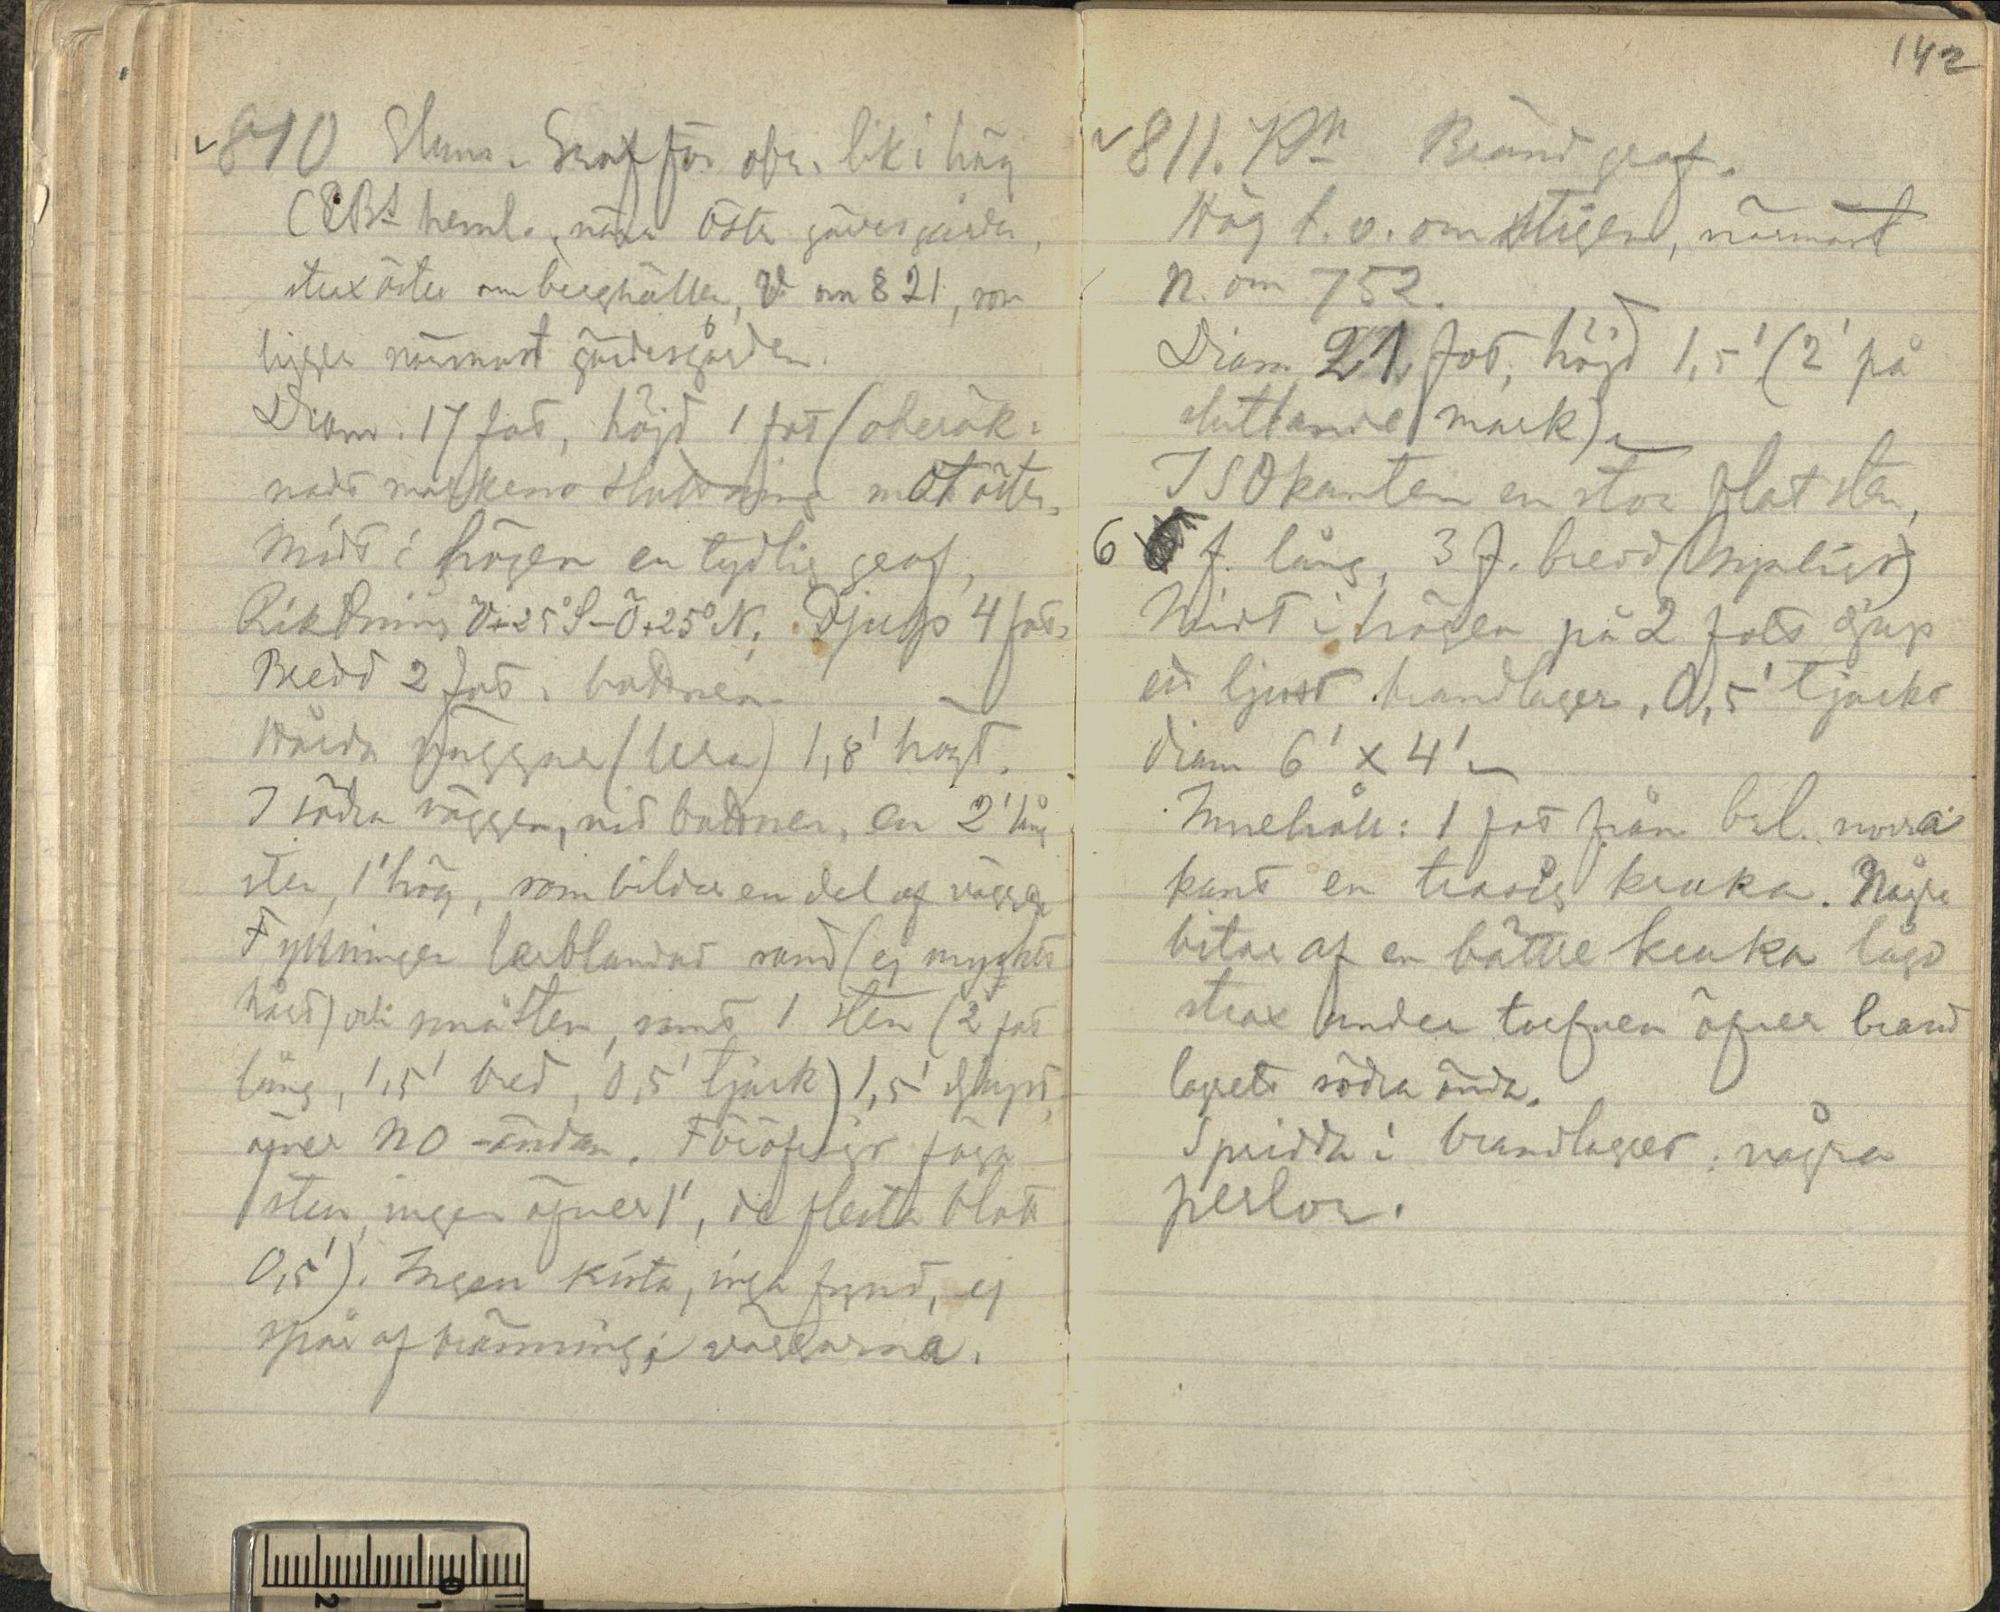 810 Graf för obr. lik i hög
nära öster gärdesgården,
strax öster om berghällen, V om 821, som
ligger närmast gärdesgården.
Diam. 17 fot, höjd 1 fot (oberäk-
nadt markens sluttning mot öster.
Midt i högen en tydlig graf,
Riktning V+25°S–Ö+25°N. Djup 4 fot,
Bredd 2 fot i bottnen.
Hårda väggar (lera) 1,8' högt.
I södra väggen, vid bottnen, en 2' lång
sten, 1' hög, som bildar en del af väggen
Fyllningen lerblandad sand (ej mycket
hård) och småsten, samt 1 sten (2 fot
lång, 1,5' bred, 0,5' tjock) 1,5' djupt,
öfver NO-ändan. Föröfrigt föga
sten, ingen öfver 1', de flesta blott
0,5'). Ingen kista, inga fynd, ej
spår af bränning i väggarna.
142
811. Brand graf.
Hög t.v. om stigen, närmast
N. om 752.
Diam 21 fot, höjd 1,5' (2' på
sluttande mark).
I SO kanten en stor flat sten,
6 f. lång, 3 f. bred
Midt i högen på 2 fots djup
ett ljust brandlager, 0,5' tjockt
diam 6' x 4'
Innehåll: 1 fot från brl. norra
kant en trasig kruka. Några
bitar af en bättre kruka lågo
strax under torfven öfver brand
lagrets södra ända.
Spridda i brandlagret: några
perlor.